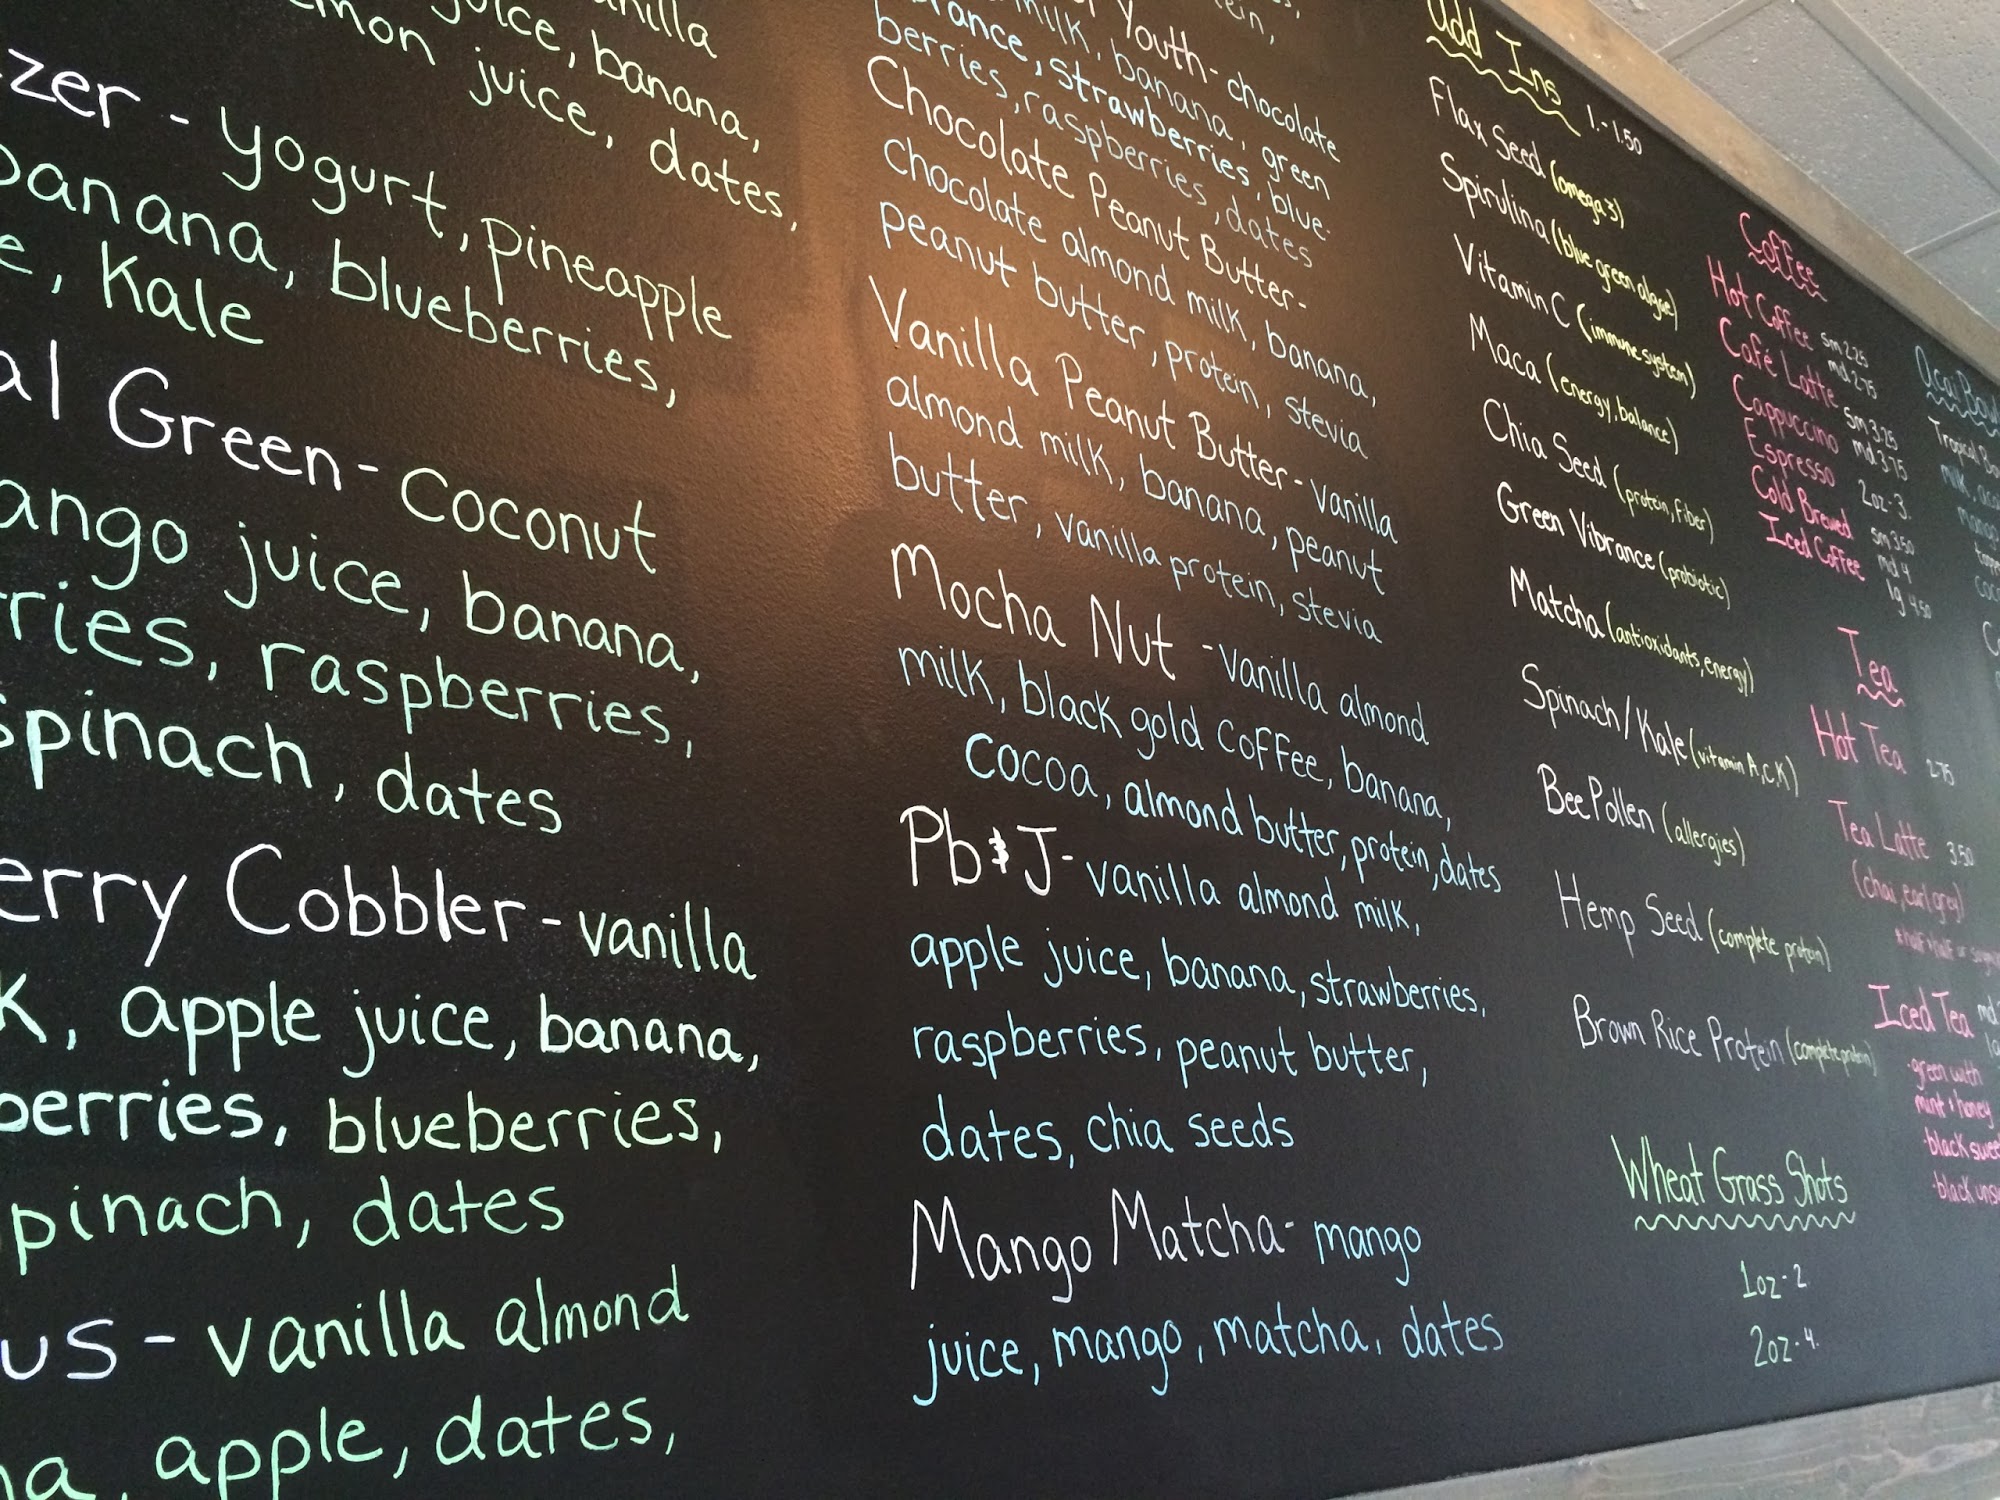 vanilla
juice, banana,
juice, dates,
yogurt, pineapple
banana, blueberries,
Kale
Green - Coconut
juice, banana,
raspberries,
Spinach, dates
Cobbler - vanilla
apple juice, banana,
blueberries,
dates
vanilla almond
apple, dates,
Youth - chocolate
milk, banana, green
strawberries, blue-
berries, raspberries, dates
Chocolate Peanut Butter-
chocolate almond milk, banana,
peanut butter, protein, stevia
Vanilla Peanut Butter - vanilla
almond milk, banana, peanut
butter, vanilla protein, stevia
Mocha Nut - vanilla almond
milk, black gold coffee, banana,
cocoa, almond butter, protein, dates
Pb & J - vanilla almond milk,
apple juice, banana, strawberries,
raspberries, peanut butter,
dates, chia seeds
Mango Matcha - mango
juice, mango, matcha, dates
Add Ins 1.-1.50
Flax Seed (omega 3)
Spirulina (blue green algae)
Vitamin C (immune system)
Maca (energy, balance)
Chia Seed (protein, fiber)
Green Vibrance (probiotic)
Matcha (antioxidants, energy)
Spinach/Kale (vitamin A,C,K)
Bee Pollen (allergies)
Hemp Seed (complete protein)
Brown Rice Protein (complete protein)
Wheat Grass Shots
1oz-2.
2oz-4.
Coffee
Hot Coffee sm 2.25
md 2.75
Café Latte sm 3.25
Cappuccino md 3.75
Espresso 2oz-3.
Cold Brewed sm 3.50
Iced Coffee md 4
lg 4.50
Tea
Hot Tea 2.75
Tea Latte 3.50
(chai, earl grey)
Iced Tea md
green with
mint + honey
black
black
Acai
Tropical
milk,